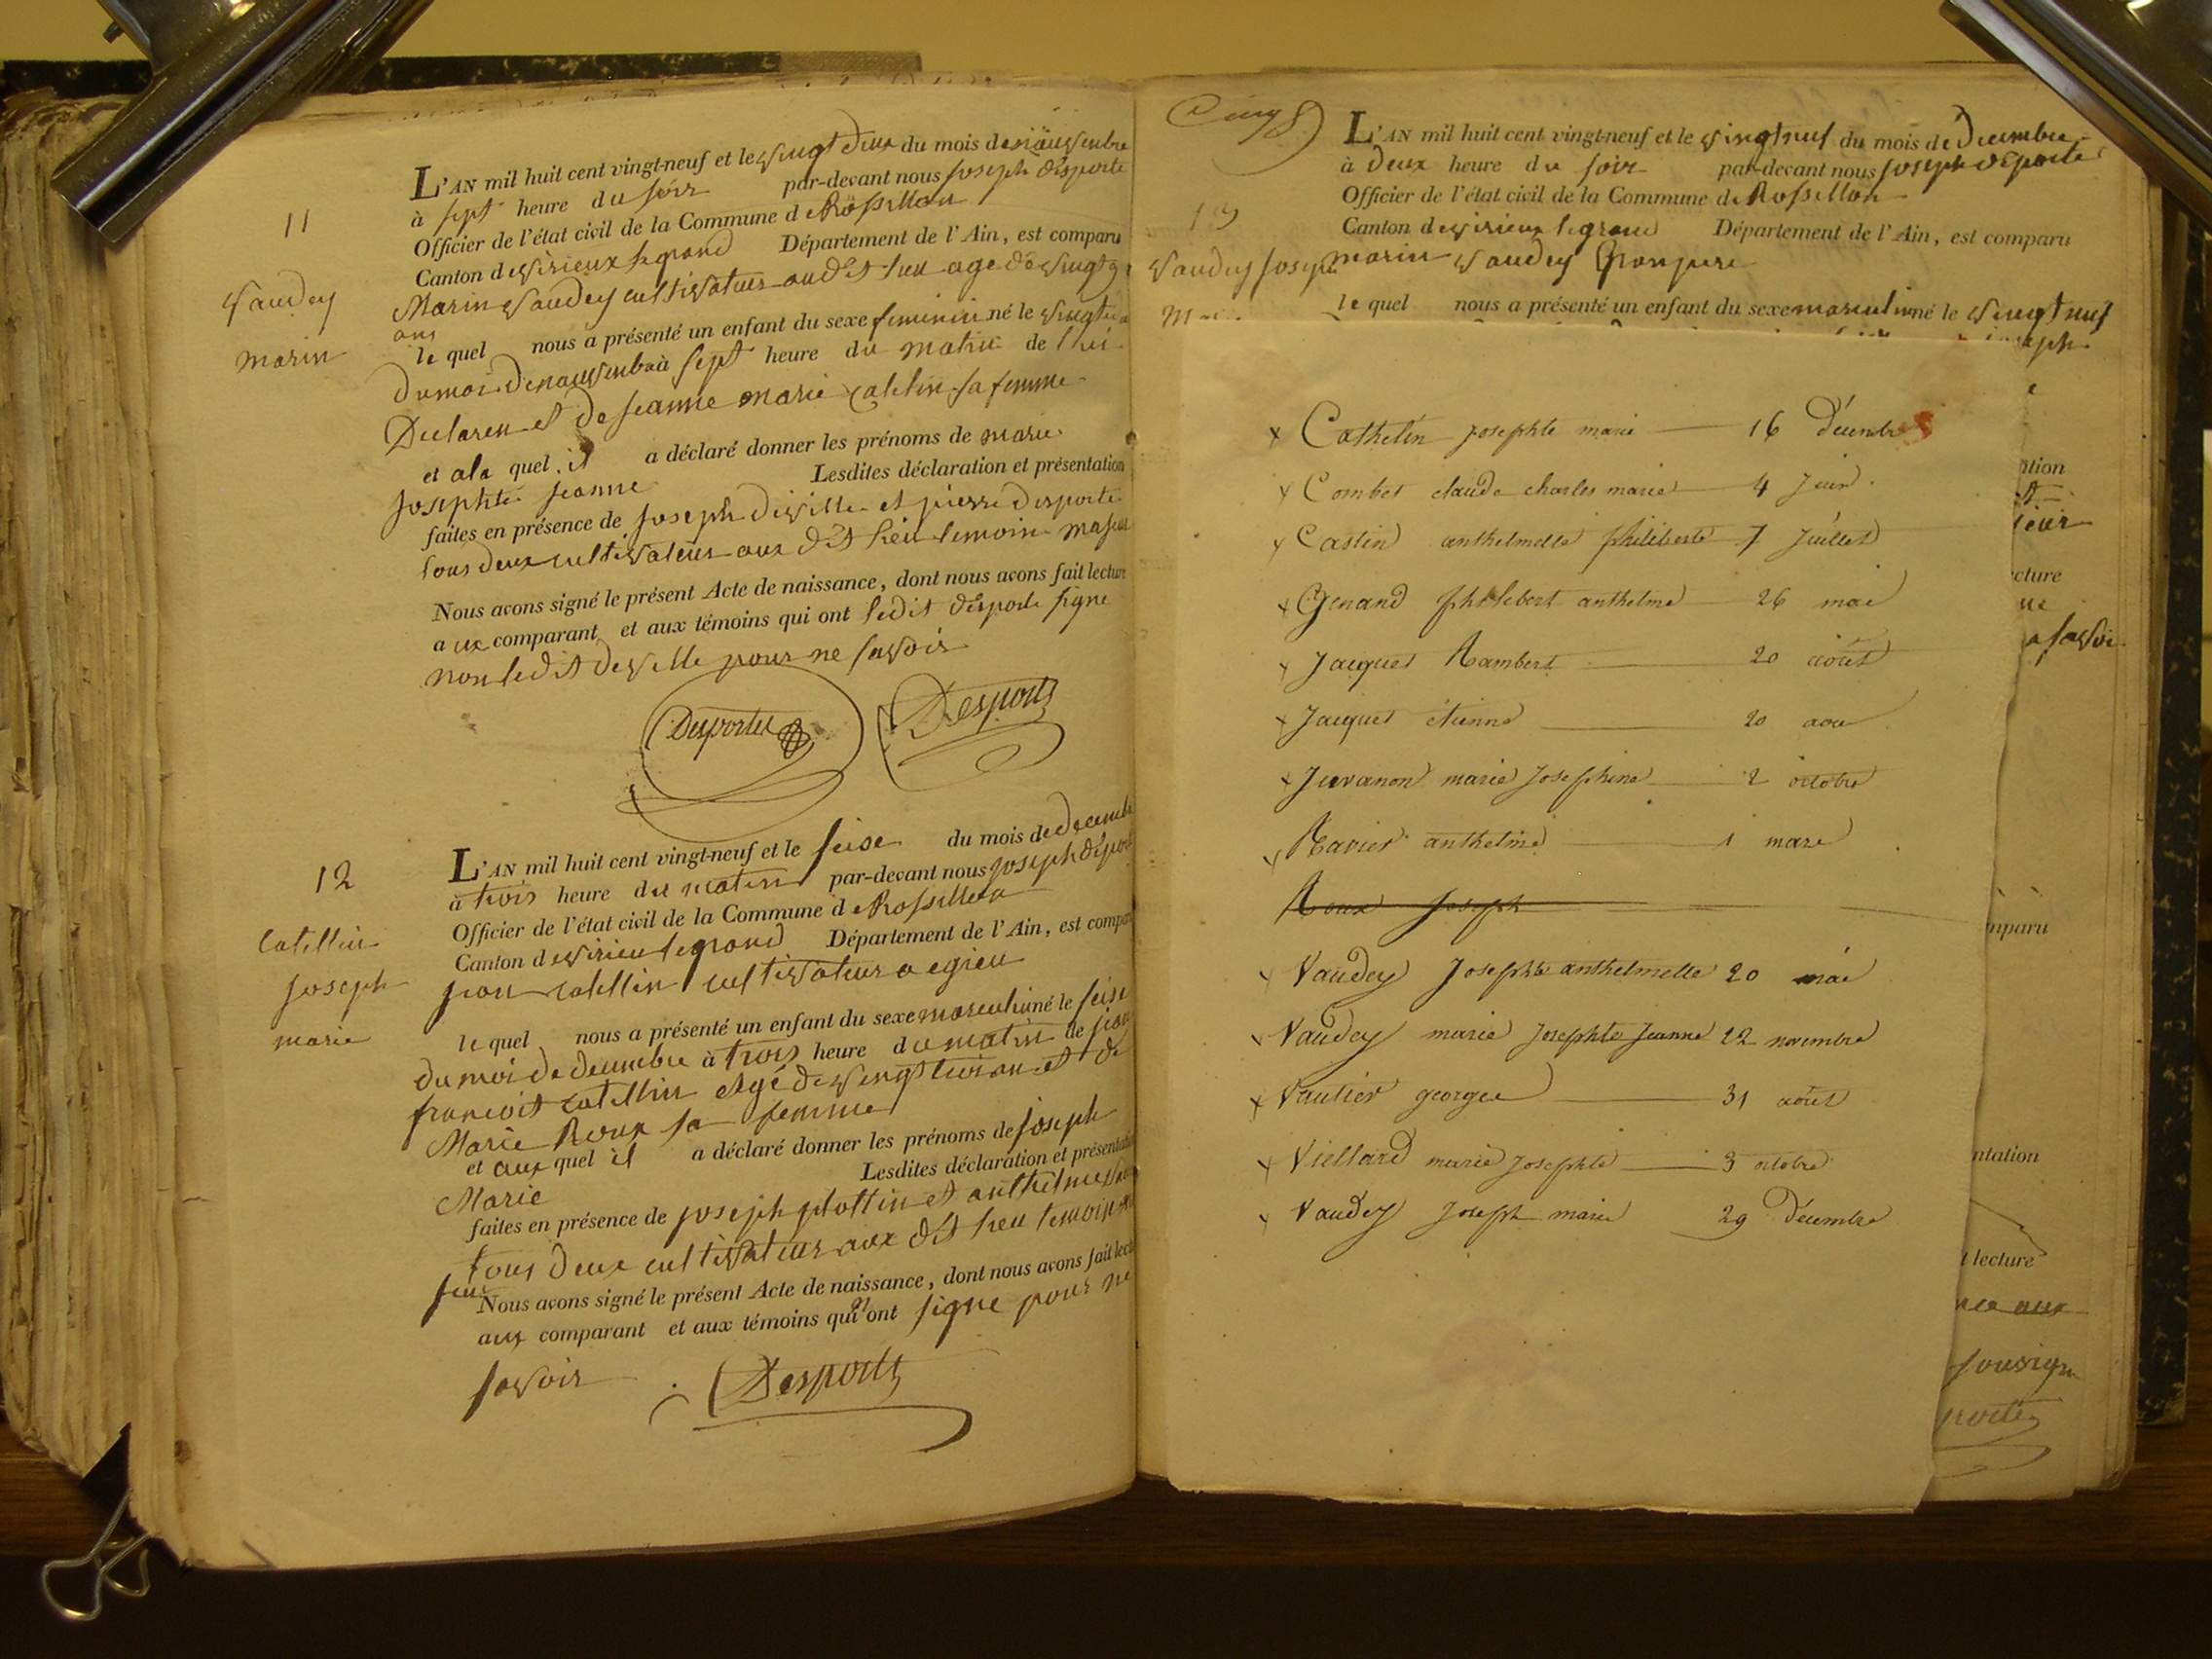 11
Vaudey
marin
L'AN mil huit cent vingt-neuf et le vingt deux du mois de
à sept heure du soir par-devant nous joseph desporte
Officier de l'état civil de la Commune de Rossillon
Canton de virieux legrand Département de l'Ain, est comparu
Marin vaudey cultivateur audit lieu age de
ans
le quel nous a présenté un enfant du sexe feminin né le
du moi de à sept heure du matin de
et de jeanne marie catelin sa femme
et a la quel il a déclaré donner les prénoms de marie
josephte jeanne Lesdites déclaration et présentation
faites en présence de joseph deville et pierre desporte
tous deux cultivateur aux dit lieu temoin
Nous avons signé le présent Acte de naissance, dont nous avons fait lecture
aux comparant et aux témoins qui ont ledit desporte signe
non ledit deville pour ne savoir
Desportes Desportes
12
Catellin
joseph
marie
L'AN mil huit cent vingt-neuf et le seise du mois de decembre
à trois heure du matin par-devant nous joseph
Officier de l'état civil de la Commune de Rossillon
Canton de virieu legrand Département de l'Ain, est
catellin cultivateur a egieu
le quel nous a présenté un enfant du sexe masculin né le seise
du moi de decembre à trois heure du matin de
francois catellin agé de et de
Marie Roux sa femme
et aux quel il a déclaré donner les prénoms de joseph
Marie Lesdites déclaration et
faites en présence de joseph plottin et
tous deux cultivateur aux dit lieu temoin
Nous avons signé le présent Acte de naissance, dont nous avons fait
aux comparant et aux témoins qui ont signe pour ne
savoir
Desportes
Cinq
13
vaudey joseph
L'AN mil huit cent vingt-neuf et le vingt neuf du mois de decembre
à deux heure du soir par-devant nous joseph desporte
Officier de l'état civil de la Commune de Rossillon
Canton de virieux legrand Département de l'Ain, est comparu
marin vaudey
le quel nous a présenté un enfant du sexe masculin né le vingt neuf
x Cathelin josephte marie 16 Décembre
x Combet claude charles marie 4 Juin
x Castin anthelmette philiberte 7 Juillet
x Genand philebert anthelme 26 mai
x Jacques Rambert 20 août
x Jacques étienne 20 aou
x Juvanon marie Josephine 2 octobre
x Ravier anthelme 1 mars
Roux Joseph
x Vaudey Josephte anthelmette 20 mai
x Vaudey marie Josephte Jeanne 22 novembre
x Vautier george 31 août
x Viellard marie Josephte 3 octobre
x Vaudey Joseph marie 29 Décembre
cture
savoir
mparu
ntation
lecture